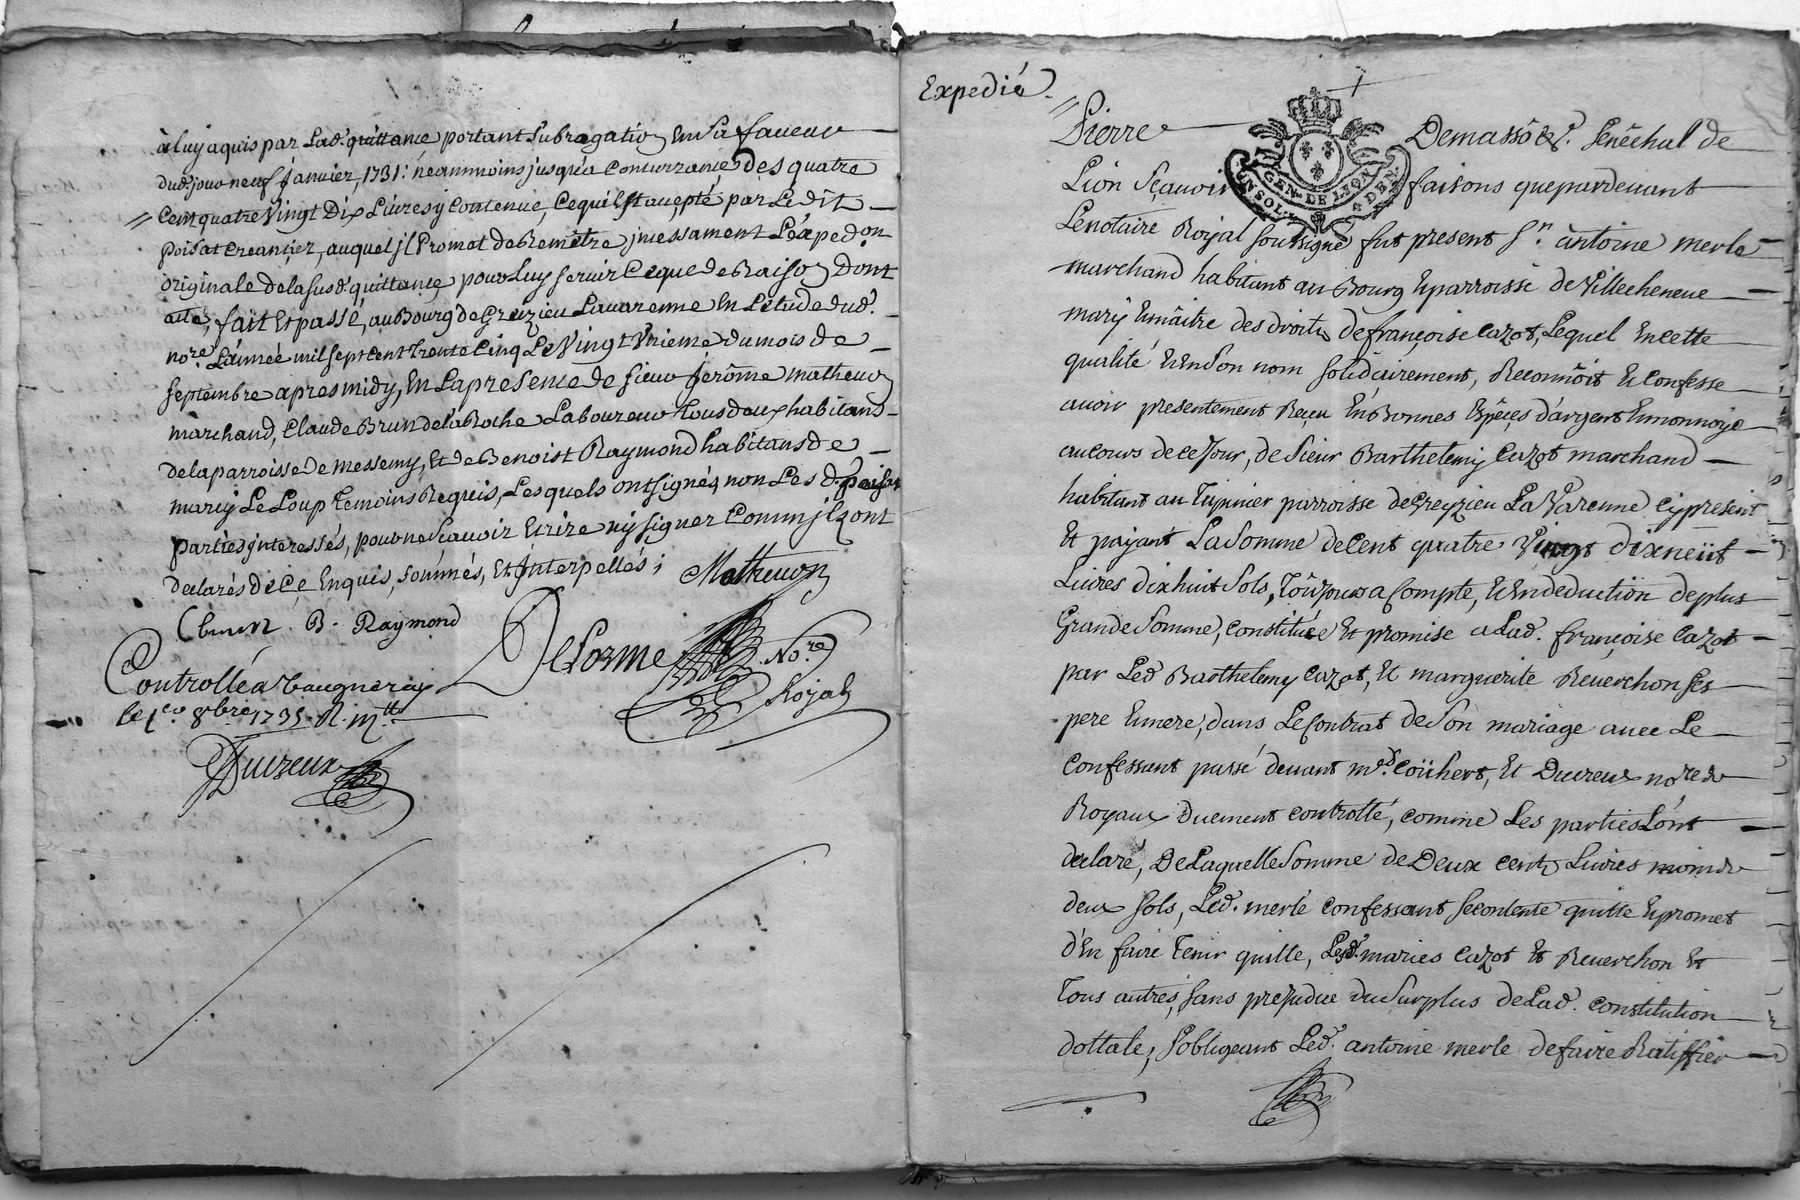 à luy aquis par Lad. quittance portant subrogatio En sa faveur
dud. jour neuf Janvier, 1731: néanmoins jusqu'a Concurrance des quatre
Cent quatre Vingt Dix Livres y Contenue, Ce qu'il st acepté par Le dit
poisat Creantier, auquel jl Promet de Remetre jncessament L'éxpedon
originale de la susd. quittance pour Luy servir Ce que de Raiso Dont
acte, fait Et passé, au Bourg de Greizieu Lavarenne En L'étude dud.
nore. L'année mil sept cent trente Cinq Le Vingt Unieme du mois de
septembre apres midy, En La presence de sieur Jerôme matheuo
marchand, Claude Brun de la Roche Laboureur tous deux habitans
de la parroisse de messemy, Et de Benoist Raymond habitans de
marcy Le Loup temoins Requis, Lesquels ont signés non Les d.
parties jnteressés, pour ne sçavoir Ecrire ny signer Comm' jlz ont
declarés de Ce Enquis, sommés, Et jnterpellés;
Matheuon
Cbrun B. Raymond
Delorme Nore.
Royal
Controllé a Vaugneray
le 1er 8bre 1735. R. mtt.
Duvreux
Expedié.
Pierre Demasso &c. senêchal de
Lion Sçavoir faisons que pardevant
GEN. DE LYON
Le notaire Royal soussigné fut present sr. antoine merle
marchand habitant au Bourg Et parroisse de Villecheneve
mary Et maître des droits de françoise Cazot, Lequel En cette
qualité Et En son nom solidairement, Reconnôit Et Confesse
avoir presentement Reçeu En Bonnes Espèces d'argent Et monnoye
au cours de ce Jour, de sieur Barthelemy Cazot marchand
habitant au parroisse de Greyzieu La Varenne cy present
Et payant La somme de Cent quatre Vingt dixneüf
Livres dixhuit sols, toûjours a Compte, Et En deduction de plus
Grande somme, constituëe Et promise a Lad. françoise Cazot
par Led Barthelemy Cazot, Et marguerite Reverchon ses
pere Et mere, dans Le Contrat de son mariage avec Le
Confessant passé devant Coühert, Et Duvreux nores
Royaux Duement controllé, comme Les parties L'ont
declaré, De Laquelle somme de Deux cents Livres moins
deux sols, Led. merle confessant se contente quitte Et promet
d'En faire tenir quitte, Lesd. mariés Cazot Et Reverchon Et
tous autres, sans prejudice du surplus de Lad. constitution
dottale, s'obligeant Led. antoine merle de faire Ratiffier